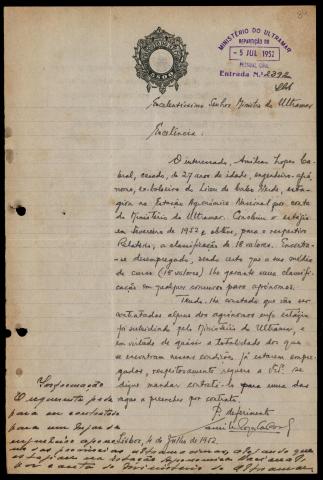 MINISTÉRIO DO ULTRAMAR
REPARTIÇÃO DO
- 5 JUL 1952
PESSOAL CIVIL
Entrada N.º 2392
Excelentíssimo Senhor Ministro do Ultramar
Excelência:
O interessado, Amílcar Lopes Ca-
bral, casado, de 27 anos de idade, engenheiro-agró-
nomo, ex-bolseiro do Liceu de Cabo Verde, esta-
giou na Estação Agronómica Nacional por conta
do Ministério do Ultramar. Concluiu o estágio
em fevereiro de 1952 e obteve, para o respectivo
Relatório, a classificação de 18 valores. Encontra-
-se desempregado, sendo certo que a sua média
do curso (15 valores) lhe garante uma classifi-
cação em qualquer concurso para agrónomos.
Tendo-lhe constado que vão ser
contratados alguns dos agrónomos cujo estágio
foi subsidiado pelo Ministério do Ultramar, e em
virtude de quási a totalidade dos que
se encontram nessas condições já estarem empre-
gados, respeitosamente requere a V. Exª. se
digne mandar contratá-lo para uma das
vagas a preencher por contrato.
P. deferimento
Lisboa, 4 de Julho de 1952.
Informação
O requerente pede
para ser contratado
para um lugar de
engenheiro agrónomo
das províncias ultramarinas, alegando que
estagiou na Estação Agronómica Nacional
por conta do Ministério do Ultramar